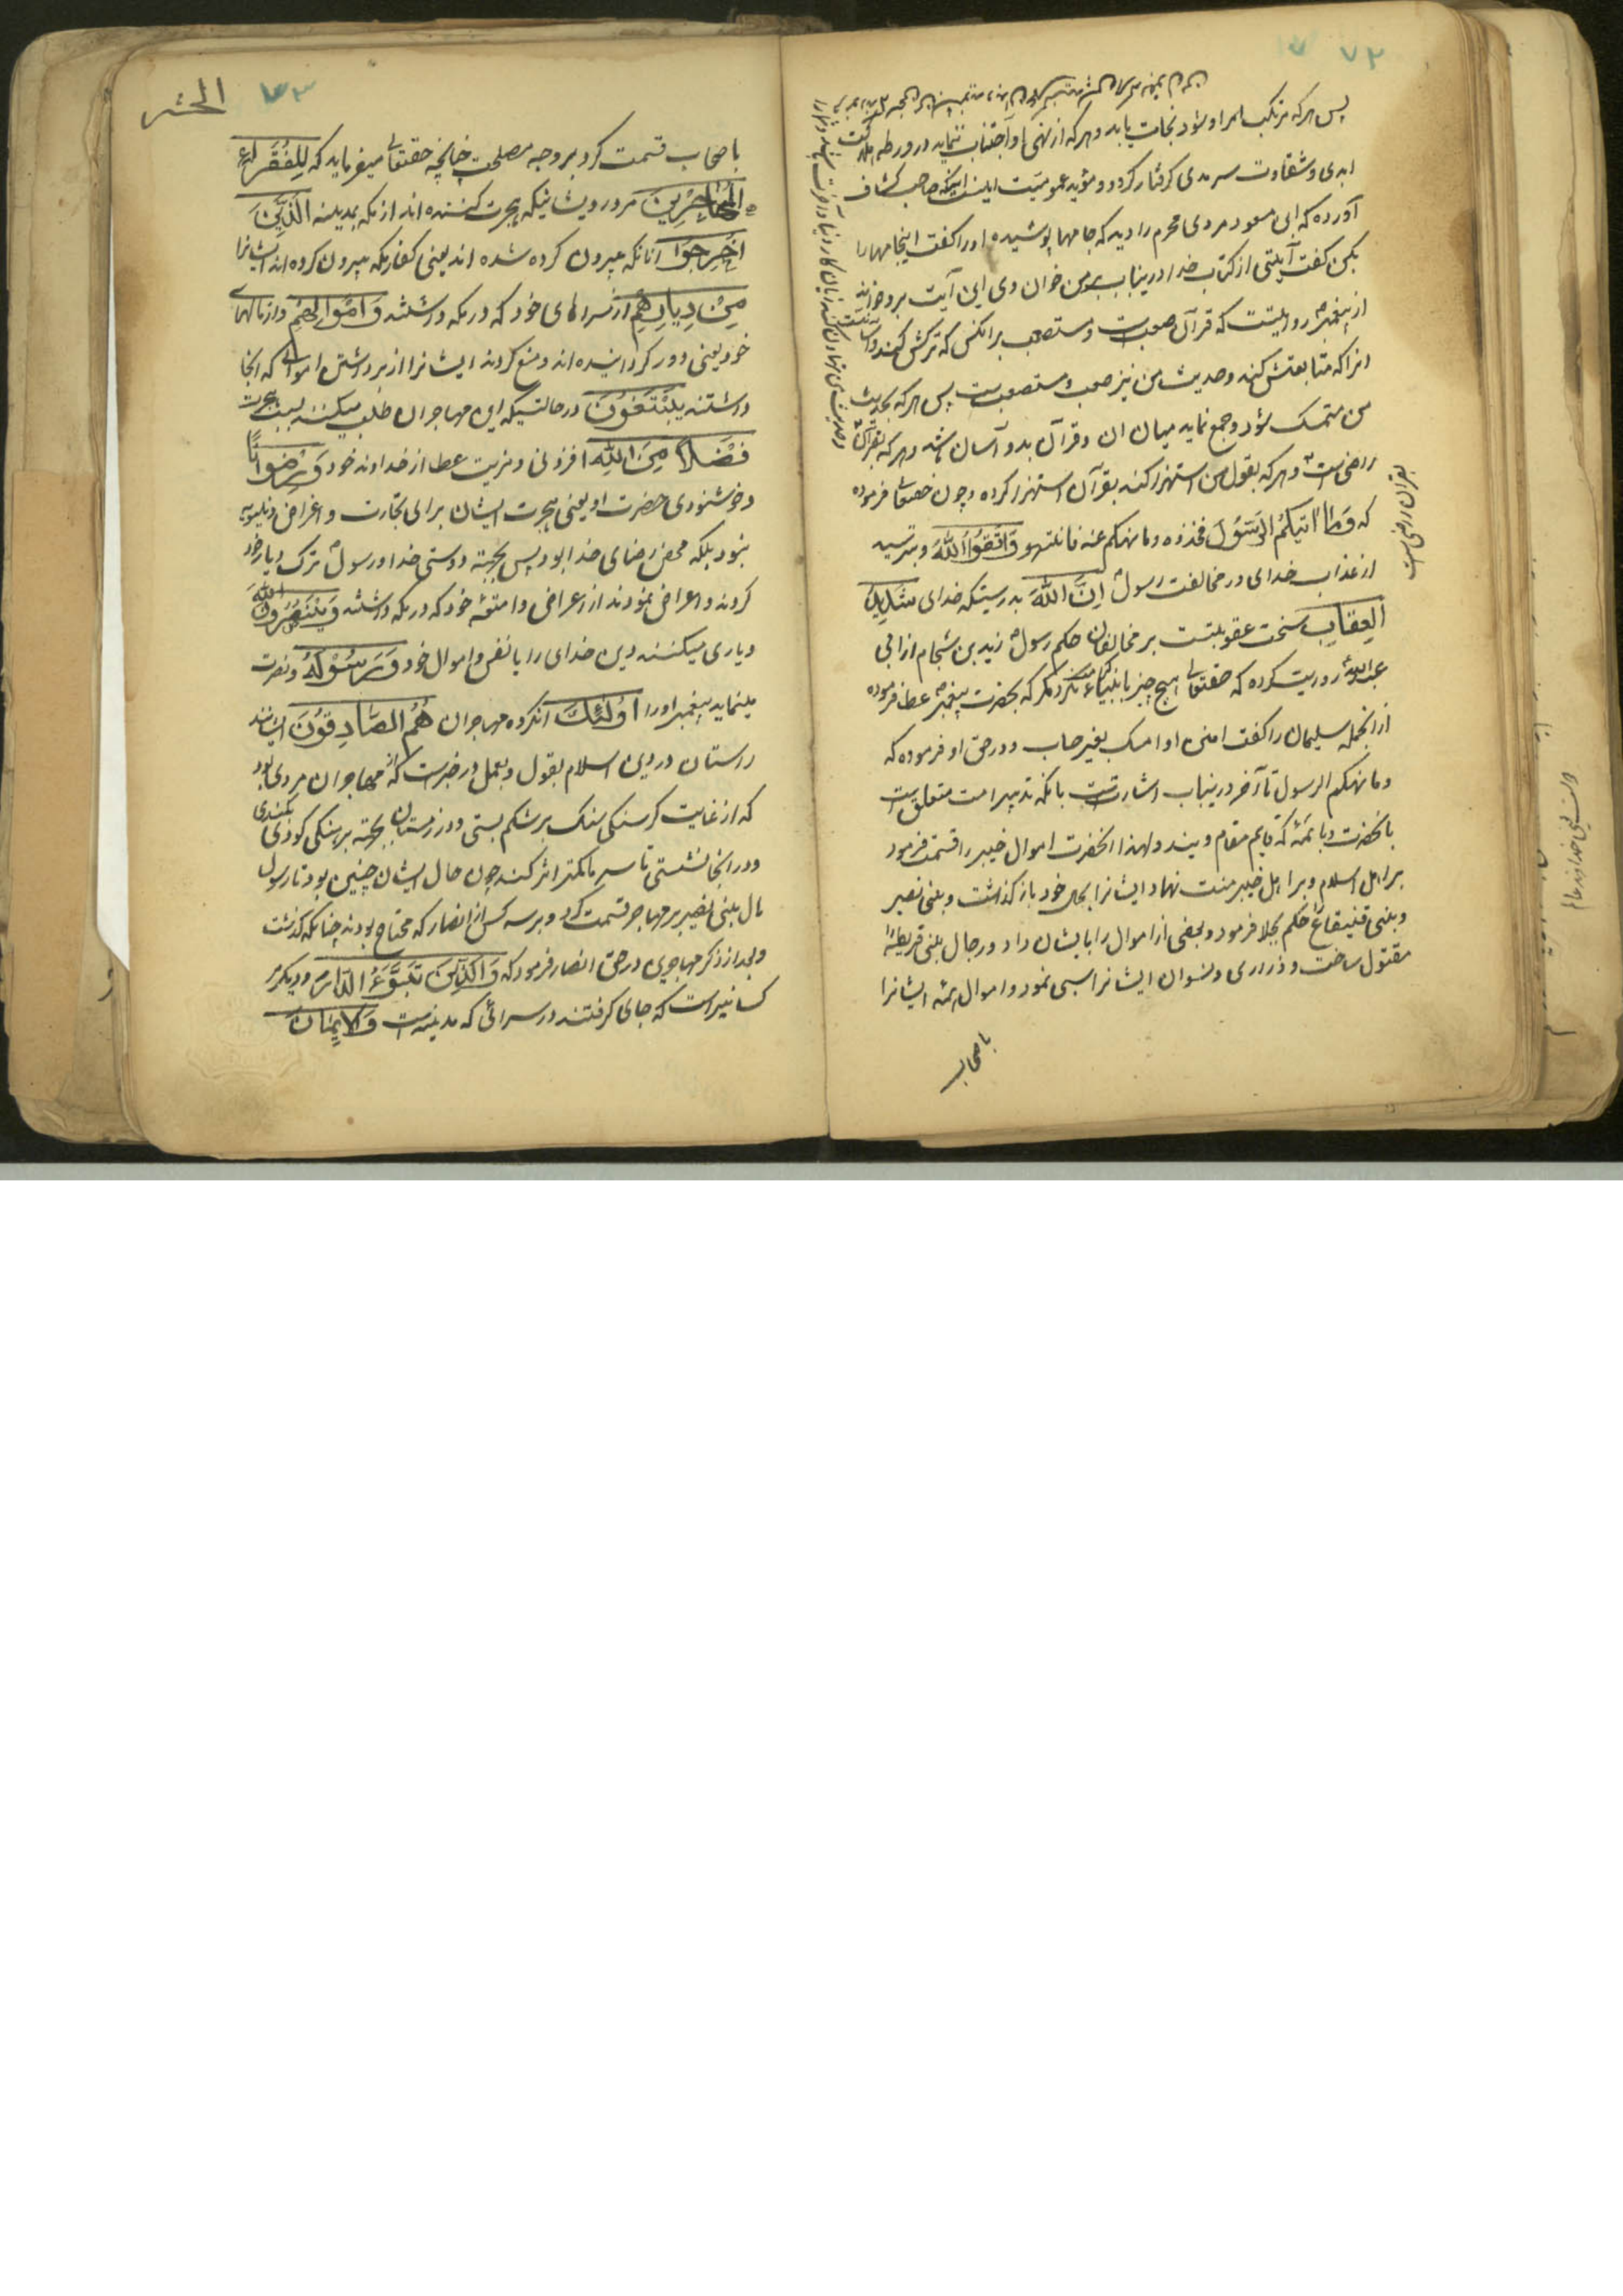 ۷۲
پس هرکه مرتکب امر او شود نجات یابد و هرکه از نهی او اجتناب ننماید در ورطه هلاکت
ابدی و شقاوت سرمدی گرفتار گردد و مؤید عمومیت اینست اینکه صاحب کشاف
آورده که ابن مسعود مردی محرم را دید که جامها پوشیده او را گفت اینجامها را
بکن گفت آیتی از کتاب خدا درینباب بر من خوان وی این آیت برو خواند
از پیغمبر ص روایتست که قرآن صعبست و مستصعب بر انکس که ترکش کند و آسانست
انرا که متابعتش کند و حدیث من نیز صعب و مستصعبست پس هرکه بحدیث
من متمسک شود و جمع نماید میان ان و قرآن بدو آسان باشد و هرکه
راضی است و هرکه بقول من استهزا کند بقرآن استهزا کرده و چون حقتعالی فرموده
بقران راضی است
که وَمَا اٰتیٰکُمُ الرَّسُوْلُ فخذوه وما نهیکم عنه فانتهو وَاتَّقُوا اللّٰهَ و بترسید
از عذاب خدای در مخالفت رسول ص اِنَّ اللّٰهَ بدرستیکه خدای شَدِیْدُ
الْعِقَابِ سخت عقوبتست بر مخالفان حکم رسول ص زید بن شحام از ابی
عبدالله ع روایت کرده که حقتعالی هیچ چیز بانبیاء عطا نکرد مگر که بحضرت پیغمبر ص عطا فرموده
از انجمله سلیمان را گفت امنن او امسک بغیر حساب و در حق او فرموده که
وما نهیکم الرسول تا آخر درینباب اشارتست بانکه تدبیر امت متعلق است
بانحضرت و بائمه که قایم مقام ویند و لهذا انحضرت اموال خیبر را قسمت فرمود
بر اهل اسلام و بر اهل خیبر منت نهاد و ایشانرا بحال خود باز گذاشت و بنی نضیر
و بنی قنیقاع حکم بجلا فرمود و بعضی از اموال را بایشان داد و رجال بنی قریظه را
مقتول ساخت و ذراری و نسوان ایشانرا سبی نمود و اموال همه ایشانرا
باصحاب
۷۳
الحشر
باصحاب قسمت کرد بر وجه مصلحت چنانچه حقتعالی میفرماید که لِلْفُقَرَاءِ
الْمُهَاجِرِیْنَ مر درویشانیکه هجرت کننده اند از مکه بمدینه الَّذِیْنَ
اُخْرِجُوْا آنانکه بیرون کرده شده اند یعنی کفار مکه بیرون کرده اند ایشانرا
مِنْ دِیَارِهِمْ از سراهای خود که در مکه داشتند وَاَمْوَالِهِمْ و از مالهای
خود یعنی دور گردانیده اند و منع کردند ایشانرا از برداشتن اموالی که انجا
داشتند یَبْتَغُوْنَ در حالتیکه این مهاجران طلب میکنند بسبب هجرت
فَضْلاً مِنَ اللّٰهِ افزونی و مزیت عطا از خداوند خود وَرِضْوَانًا
و خوشنودی حضرت او یعنی هجرت ایشان برای تجارت و اغراض دنیویه
نبود بلکه محض رضای خدا بود پس بجهته دوستی خدا و رسول ص ترک دیار خود
کردند و اعراض نمودند از اعراض و امتعه خود که در مکه داشتند وَیَنْصُرُوْنَ اللّٰهَ
و یاری میکنند دین خدای را بانفس و اموال خود وَرَسُوْلَهُ و نصرت
مینماید پیغمبر او را اُولٰئِکَ آنگروه مهاجران هُمُ الصَّادِقُوْنَ ایشانند
راستان در دین اسلام بقول و بعمل در خبرست که از مهاجران مردی بود
که از غایت گرسنگی سنگ بر شکم بستی و در زمستان بجهته برهنگی گودی بکندی
و در انجا نشستی تا سرما کمتر اثر کند چون حال ایشان چنین بود تا رسول
مال بنی نضیر بر مهاجر قسمت کرد و بر سه کس از انصار که محتاج بودند چنانکه گذشت
و بعد از ذکر مهاجرین در حق انصار فرمود که وَالَّذِیْنَ تَبَوَّءُ الدَّارَ و دیگر مر
کسانیراست که جای گرفتند در سرائی که مدینه است وَالْاِیْمَانَ